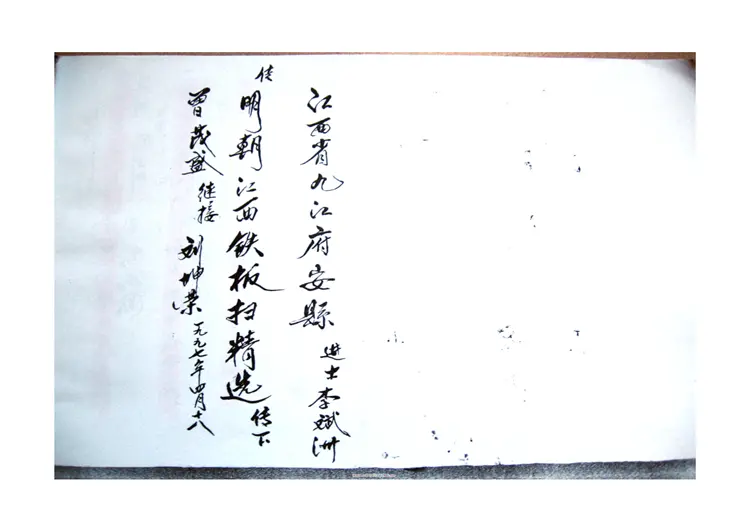 江西省九江府安縣 进士李斌洲
传明朝江西铁板扫精选 传下
曾茂盛 继接 刘坤荣 一九九七年四月十八